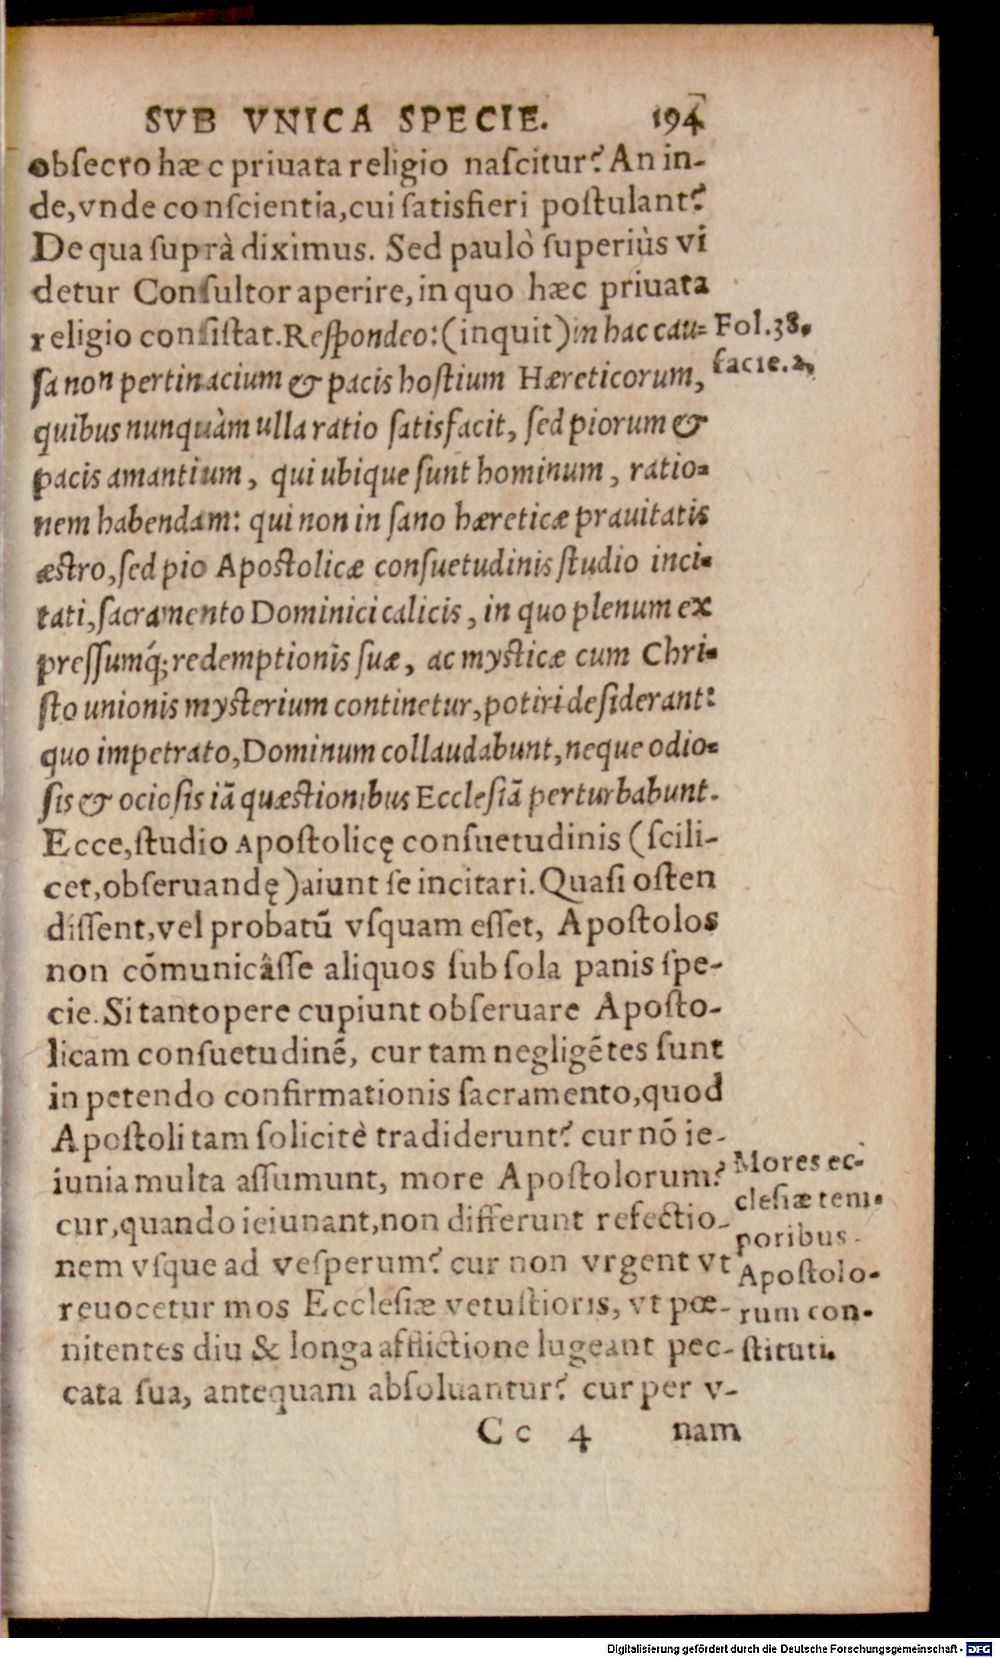 SVB VNICA SPECIE. 194
obsecro hæc priuata religio nascitur? An in-
de, vnde conscientia, cui satisfieri postulant?
De qua suprà diximus. Sed paulò superiùs vi
detur Consultor aperire, in quo hæc priuata
religio consistat. Respondeo: (inquit) in hac cau-
Fol. 38.
facie. 2,
sa non pertinacium & pacis hostium Hæreticorum,
quibus nunquàm ulla ratio satisfacit, sed piorum &
pacis amantium, qui ubique sunt hominum, ratio-
nem habendam: qui non in sano hæreticæ prauitatis
æstro, sed pio Apostolicæ consuetudinis studio inci-
tati, sacramento Dominici calicis, in quo plenum ex
pressumq́; redemptionis suæ, ac mysticæ cum Chri-
sto unionis mysterium continetur, potiri desiderant:
quo impetrato, Dominum collaudabunt, neque odio-
sis & ociosis iã quæstionibus Ecclesiã perturbabunt.
Ecce, studio Apostolicę consuetudinis (scili-
cet, obseruandę) aiunt se incitari. Quasi osten
dissent, vel probatũ vsquam esset, Apostolos
non cõmunicâsse aliquos sub sola panis spe-
cie. Si tantopere cupiunt obseruare Aposto-
licam consuetudinẽ, cur tam negligẽtes sunt
in petendo confirmationis sacramento, quod
Apostoli tam solicitè tradiderunt? cur nõ ie-
iunia multa assumunt, more Apostolorum?
cur, quando ieiunant, non differunt refectio-
nem vsque ad vesperum? cur non vrgent vt
reuocetur mos Ecclesiæ vetustioris, vt pœ-
nitentes diu & longa afflictione lugeant pec-
cata sua, antequam absoluantur? cur per v-
Mores ec-
clesiæ tem-
poribus
Apostolo-
rum con-
stituti.
Cc 4 nam
Digitalisierung gefördert durch die Deutsche Forschungsgemeinschaft - DFG